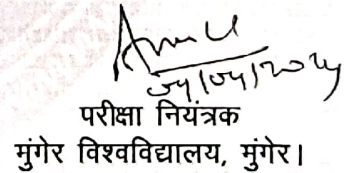 04/04/2024
परीक्षा नियंत्रक
मुंगेर विश्वविद्यालय, मुंगेर।